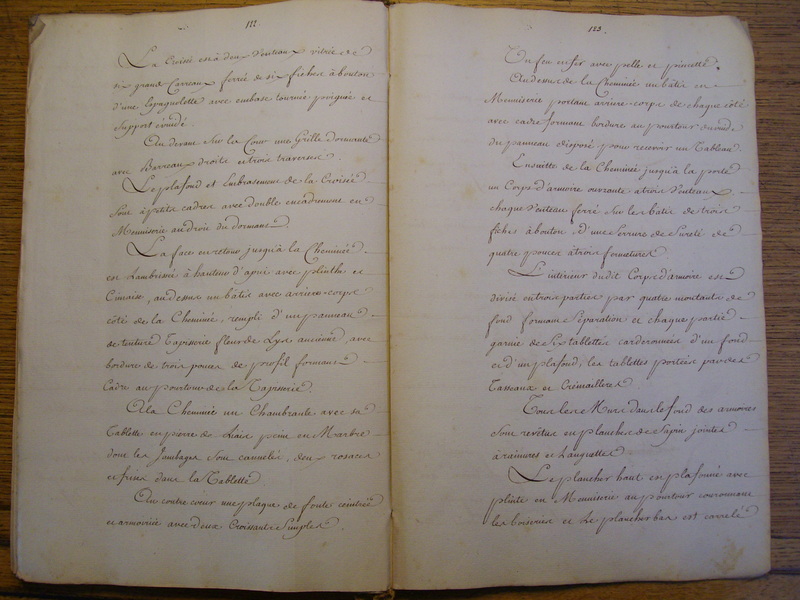 122.
La Croisé est à deux Venteaux vitrée de
six grands Carreaux ferrée de six fiches à bouton
d'une Espagnolette avec embase tournée poignée et
Support évuidé.
Au devant sur la Cour une Grille dormante
avec Barreaux droits et trois traverses.
Le plafond et Embrasement de la Croisée
sont à petits cadres avec double encadrement en
Menuiserie au droit du dormant.
La face en retour jusqu'à la Cheminée
est Lambrissée à hauteur d'apui avec plinthe et
Cimaise, au dessus un bâtis avec arriere-corps
côté de la Cheminée, rempli d'un panneau
de tenture Tapisserie fleur de Lys ancienne, avec
bordure de trois pouces de profil formant
Cadre au pourtour de la Tapisserie
A la Cheminée un Chambranle avec sa
Tablette en pierre de Liais peint en Marbre
dont les Jambages sont cannelés, deux rosaces
et frise dans la Tablette
Au contre cœur une plaque de fonte ceintrée
et armoriée avec deux Croissants Simples.
123.
Un feu en fer avec pelle et pincette.
Au dessus de la Cheminée un bâtis en
Menuiserie portant arriere-corps de chaque côté
avec cadre formant bordure au pourtour du vuide
du panneau disposé pour recevoir un Tableau.
Ensuitte de la Cheminée jusqu'à la porte
un Corps d'armoire ouvrante à trois Venteaux
chaque Venteau ferré sur les bâtis de trois
fiches à bouton, d'une Serrure de Sureté de
quatre pouces à trois fermetures
L'intérieur dudit Corps d'armoire est
divisé en trois parties par quatre montants de
fond formant Séparation et chaque partie
garnie de Six tablettes d'un fond
et d'un plafond, les tablettes portées par des
Tasseaux et Crémailleres
Tous les Murs dans le fond des armoires
sont revêtus en planches de Sapin jointes
à rainures et Languettes
Le plancher haut en plafonné avec
plinte en Menuiserie au pourtour couronnant
les boiseries et Le plancher bas est carrelé